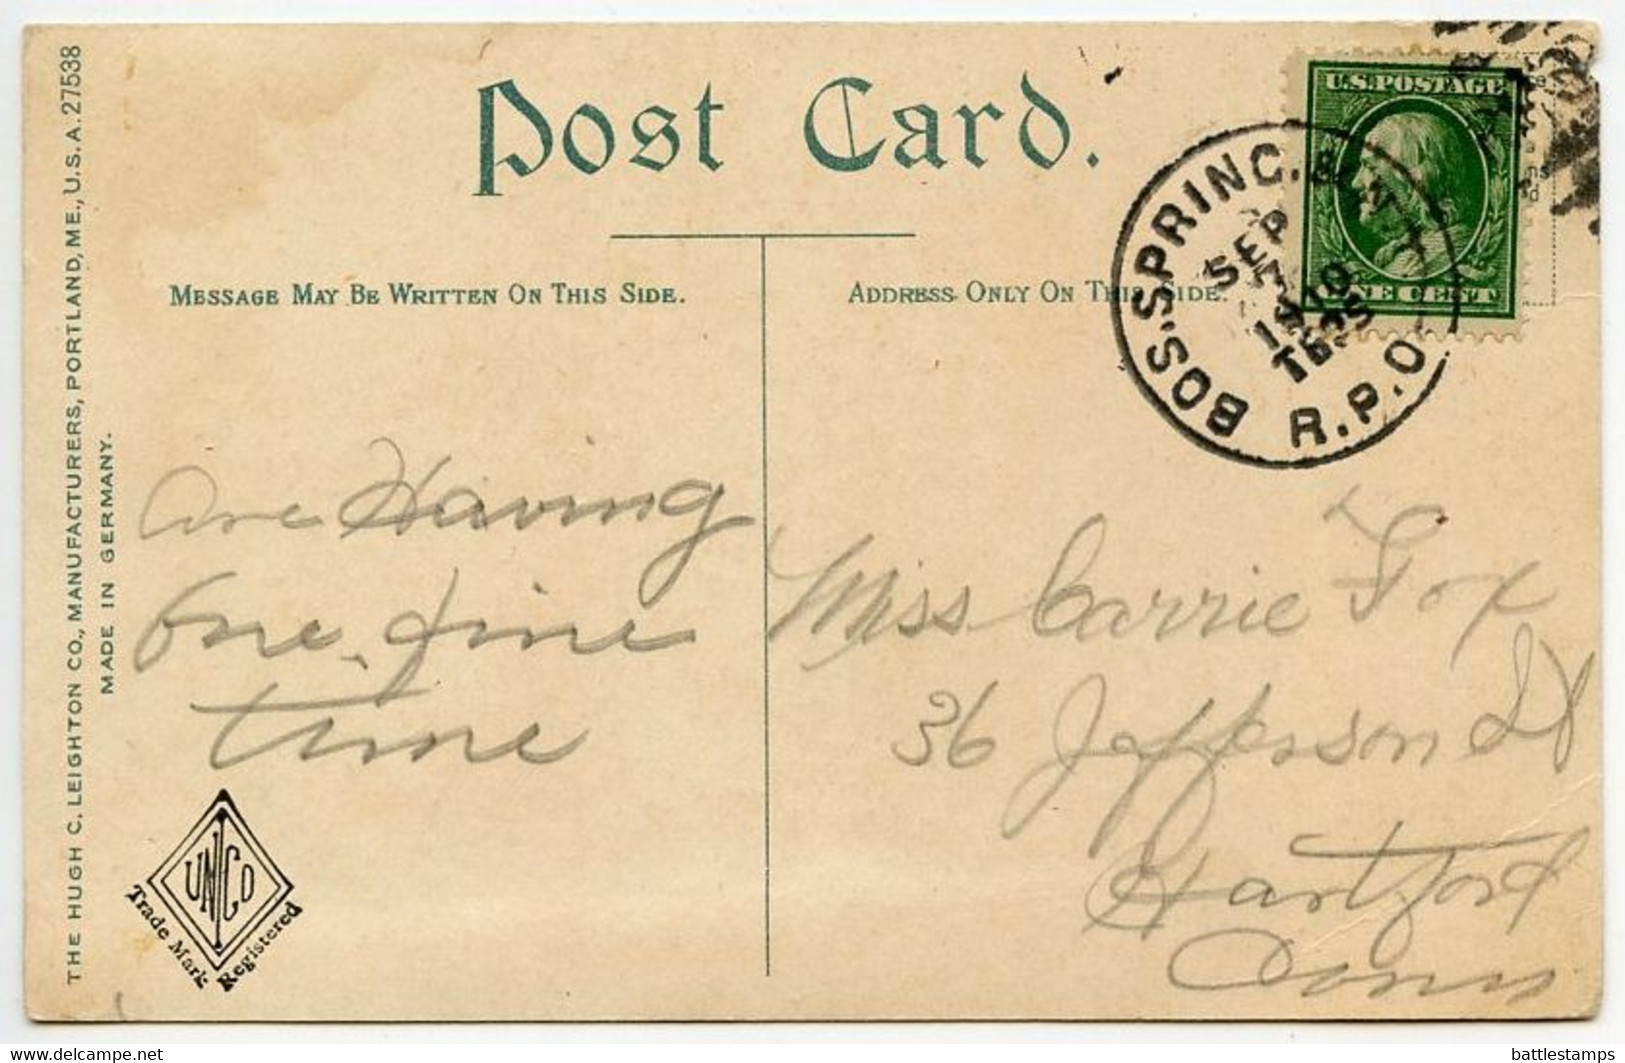 Post Card.
MESSAGE MAY BE WRITTEN ON THIS SIDE.
ADDRESS ONLY ON THIS SIDE.
U.S. POSTAGE
ONE CENT
BOS. SPRING. & N.Y.
R.P.O.
SEP
1910
THE HUGH C. LEIGHTON CO., MANUFACTURERS, PORTLAND, ME., U.S.A. 27538
MADE IN GERMANY.
are Having
One fine
time
Miss Carrie Fox
36 Jefferson St
Hartford
Conn
UNCO
Trade Mark Registered
www.delcampe.net
battlestamps